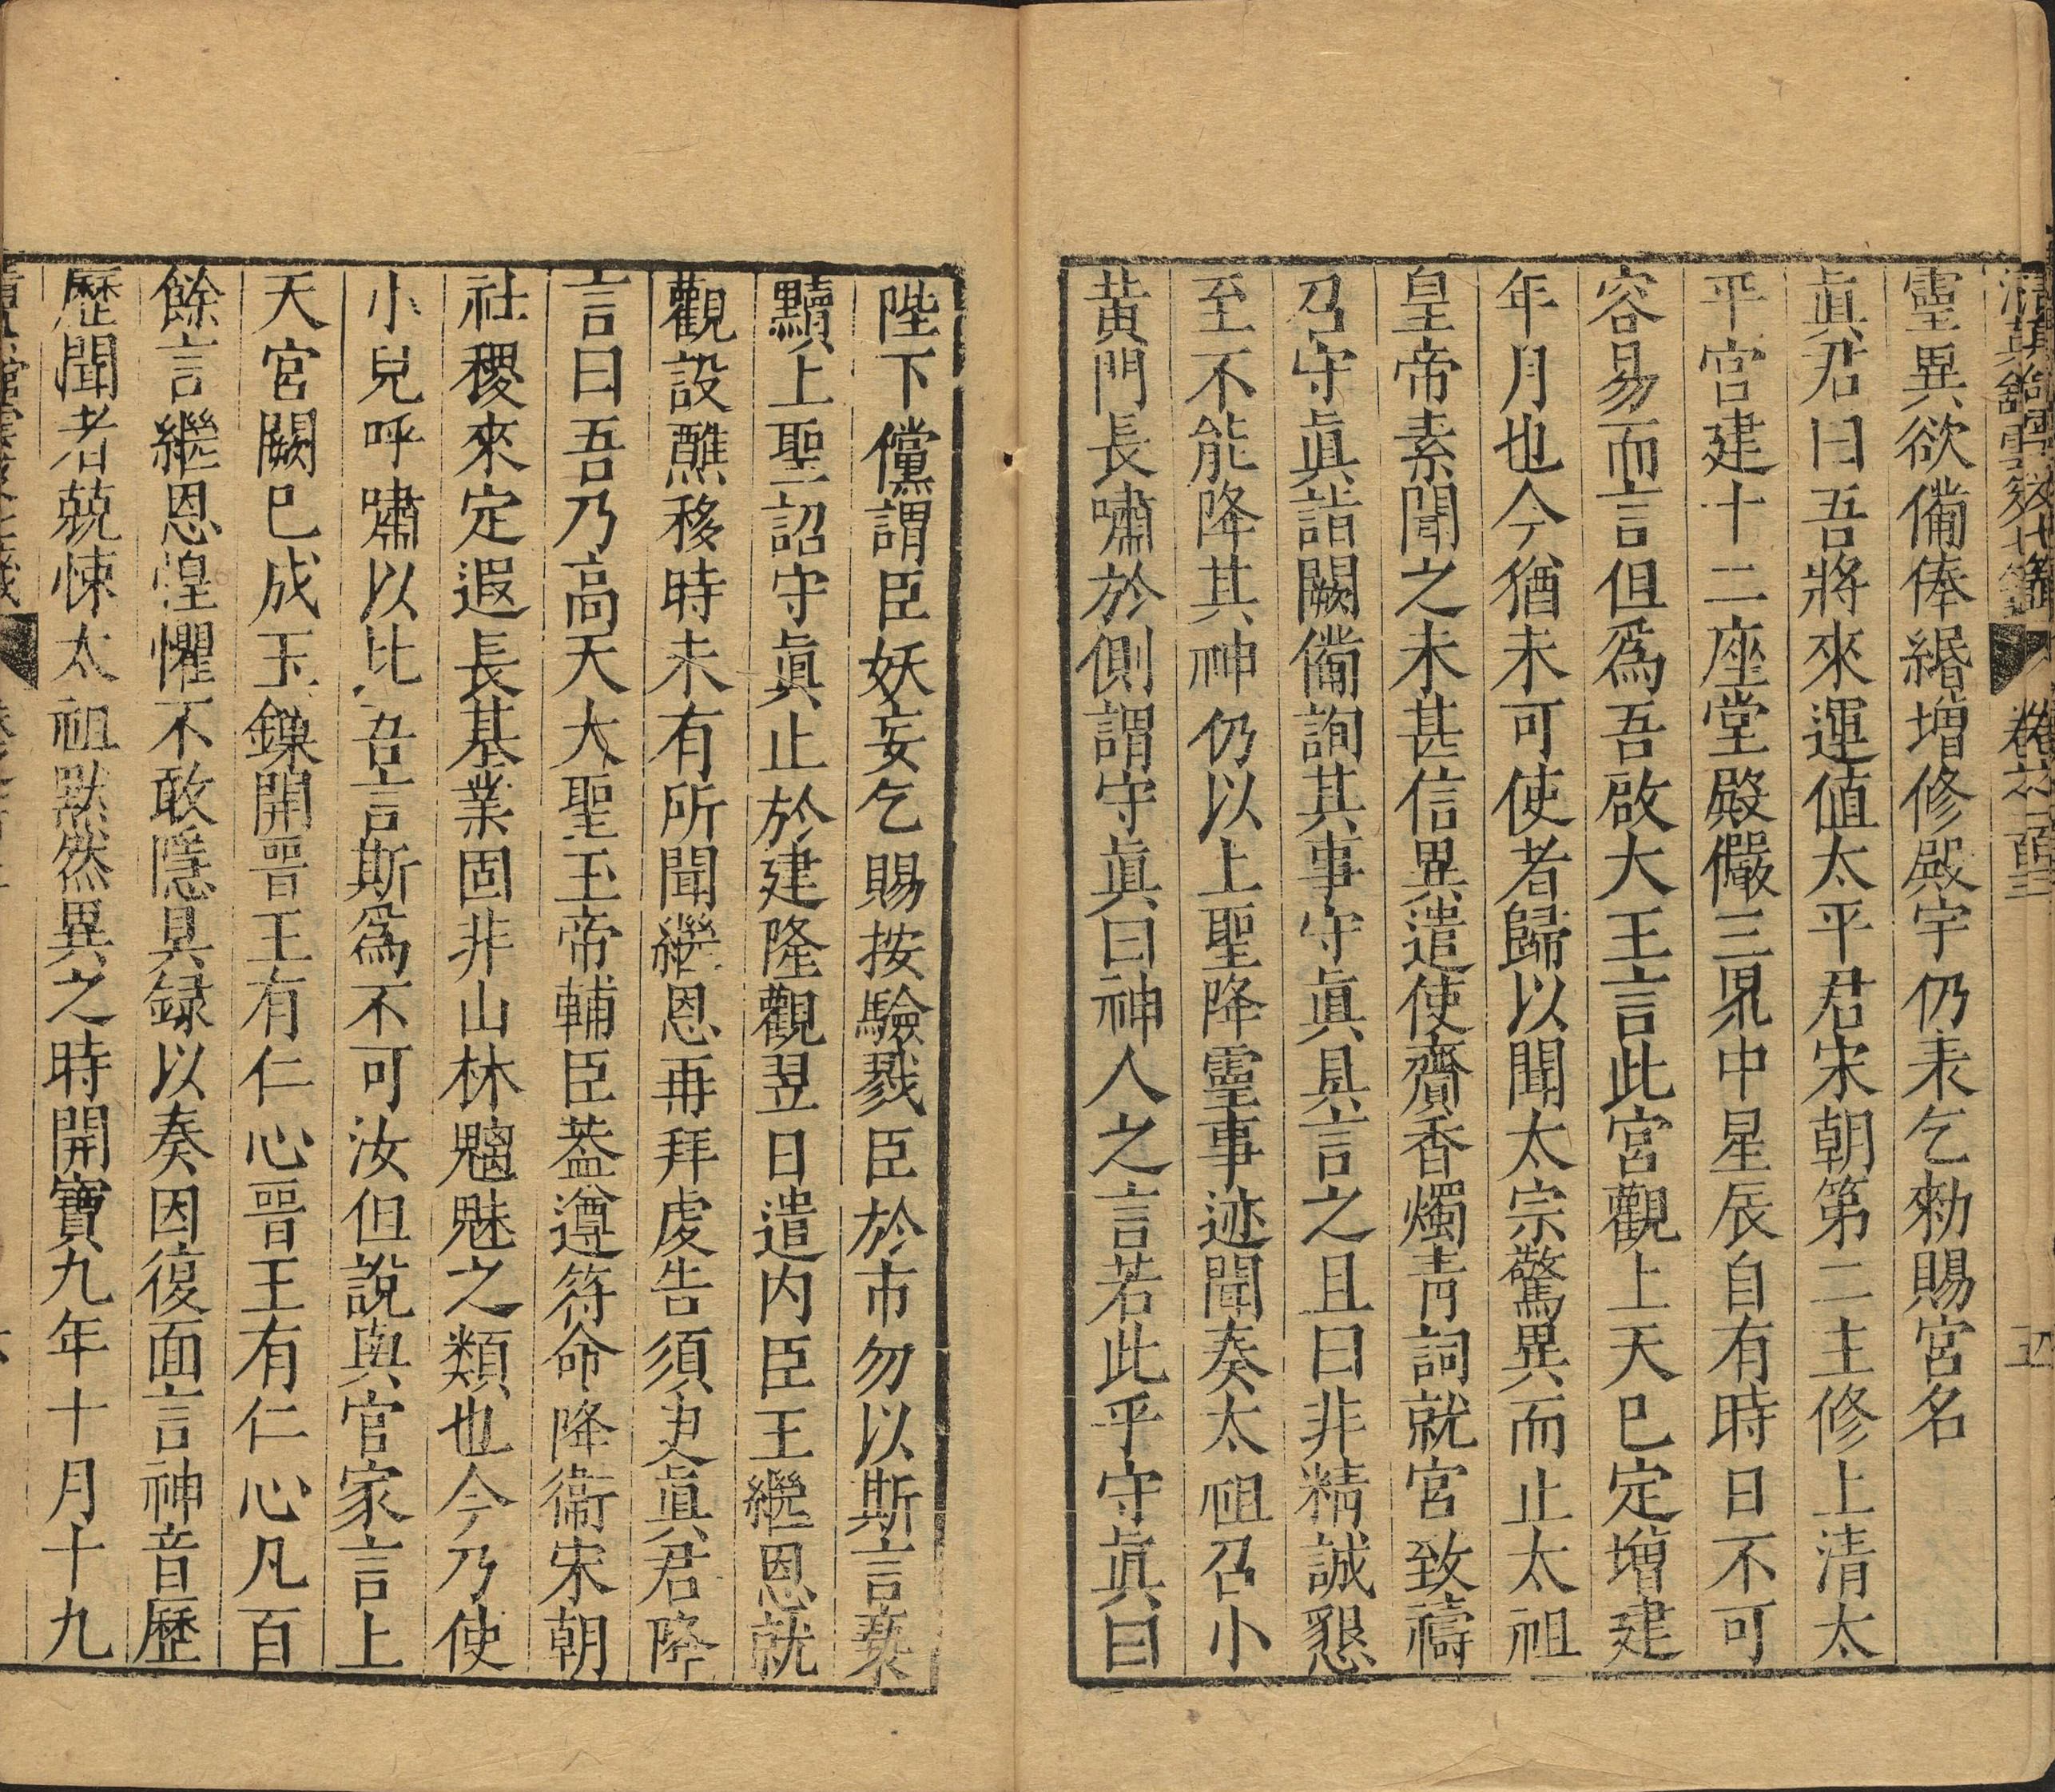 清真館雲笈七籤 卷之一百三 五
靈異欲備俸緡增修殿宇仍表乞勑賜宮名
眞君曰吾將來運值太平君宋朝第二主修上清太
平宮建十二座堂殿儼三界中星辰自有時日不可
容易而言但爲吾啟大王言此宮觀上天巳定增建
年月也今猶未可使者歸以聞太宗驚異而止太祖
皇帝素聞之未甚信異遣使齎香燭青詞就宮致禱
召守眞詣闕備詢其事守眞具言之且曰非精誠懇
至不能降其神仍以上聖降靈事迹聞奏太祖召小
黃門長嘯於側謂守眞曰神人之言若此乎守眞曰
陛下儻謂臣妖妄乞賜按驗戮臣於市勿以斯言褻
黷上聖詔守眞止於建隆觀翌日遣内臣王繼恩就
觀設醮移時未有所聞繼恩再拜虔告須臾眞君降
言曰吾乃高天大聖玉帝輔臣葢遵符命降衞宋朝
社稷來定遐長基業固非山林魑魅之類也今乃使
小兒呼嘯以比吾言斯爲不可汝但說與官家言上
天宮闕巳成玉鏁開晉王有仁心晉王有仁心凡百
餘言繼恩惶懼不敢隱具録以奏因復面言神音歷
歷聞者兢悚太祖默然異之時開寶九年十月十九